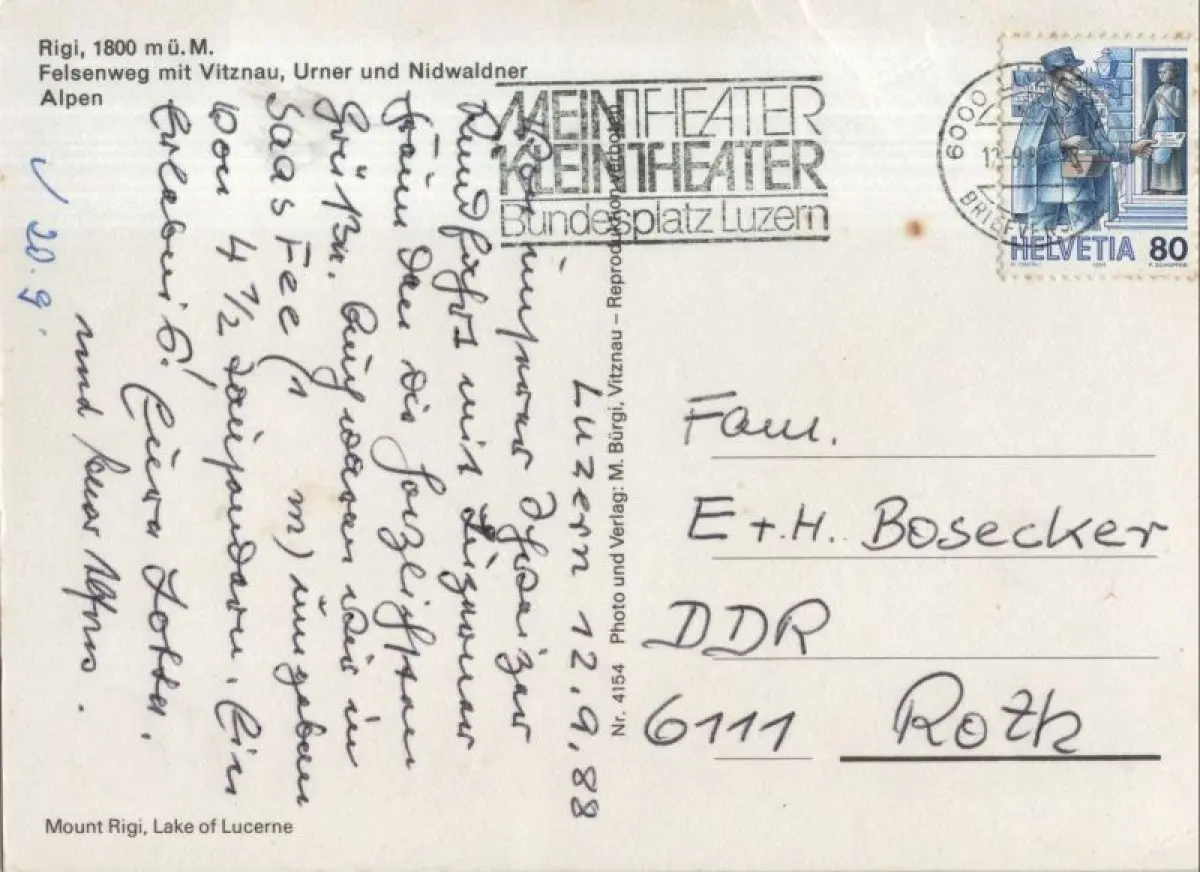 Rigi, 1800 m ü. M.
Felsenweg mit Vitznau, Urner und Nidwaldner
Alpen
MEIN THEATER
KLEINTHEATER
Bundesplatz Luzern
6000
BRIEFVERSAND
HELVETIA 80
Luzern 12.9.88
Von unserer Schweizer
Rundfahrt mit Luzerner
Träumen die herzlichsten
Grüße. Auch waren wir in
Saas Fee ( m) umgeben
von 4 1/2 Tausendern. Ein
Erlebnis! Eure Lotte.
und
20.9.
Nr. 4154 Photo und Verlag: M. Bürgi, Vitznau – Reproduktion verboten
Fam.
E + H. Bosecker
DDR
6111 Roth
Mount Rigi, Lake of Lucerne